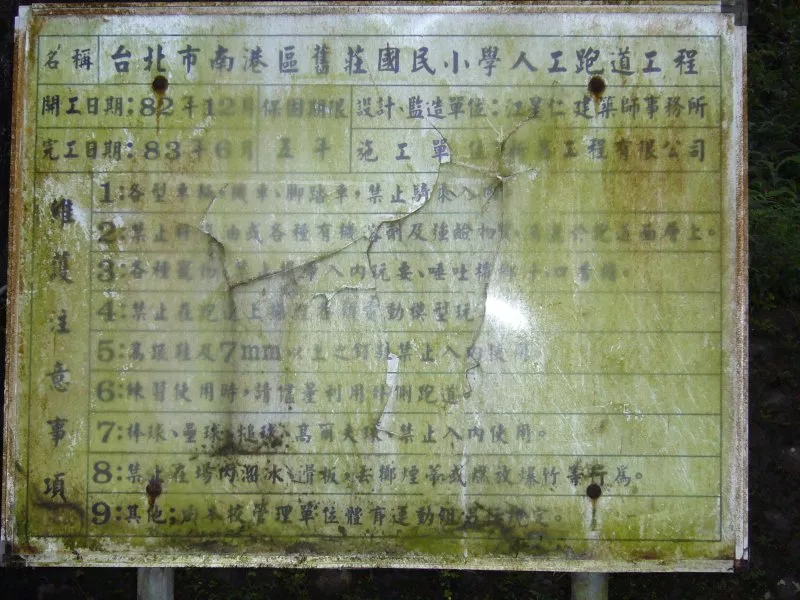 名稱 台北市南港區舊莊國民小學人工跑道工程
開工日期:82年12月 保固期限 設計、監造單位:江星仁建築師事務所
完工日期:83年6月 五年 施工單位: 工程有限公司
維護注意事項
1:各型車輛,機車、腳踏車,禁止騎乘入內
2:禁止 油或各種有機溶劑及強酸物 於跑道面層上。
3:各種寵物 禁止 帶入內玩耍、唾吐檳榔汁、口香糖。
4:禁止在跑道上 動模型玩
5:高跟鞋及7mm以上之釘鞋禁止入內使用
6:練習使用時,請儘量利用外側跑道。
7:棒球、壘球、鎚球、高爾夫球、禁止入內使用。
8:禁止在場內溜冰、滑板,丟擲煙蒂或燃放爆竹等行為。
9:其他;由本校管理單位體育運動組另行規定。